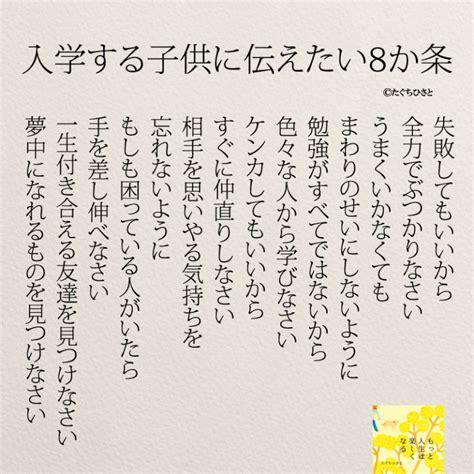 入学する子供に伝えたい8か条
©たぐちひさと
失敗してもいいから
全力でぶつかりなさい
うまくいかなくても
まわりのせいにしないように
勉強がすべてではないから
色々な人から学びなさい
ケンカしてもいいから
すぐに仲直りしなさい
相手を思いやる気持ちを
忘れないように
もしも困っている人がいたら
手を差し伸べなさい
一生付き合える友達を見つけなさい
夢中になれるものを見つけなさい
もっと
人生は
楽しく
なる
たぐちひさと